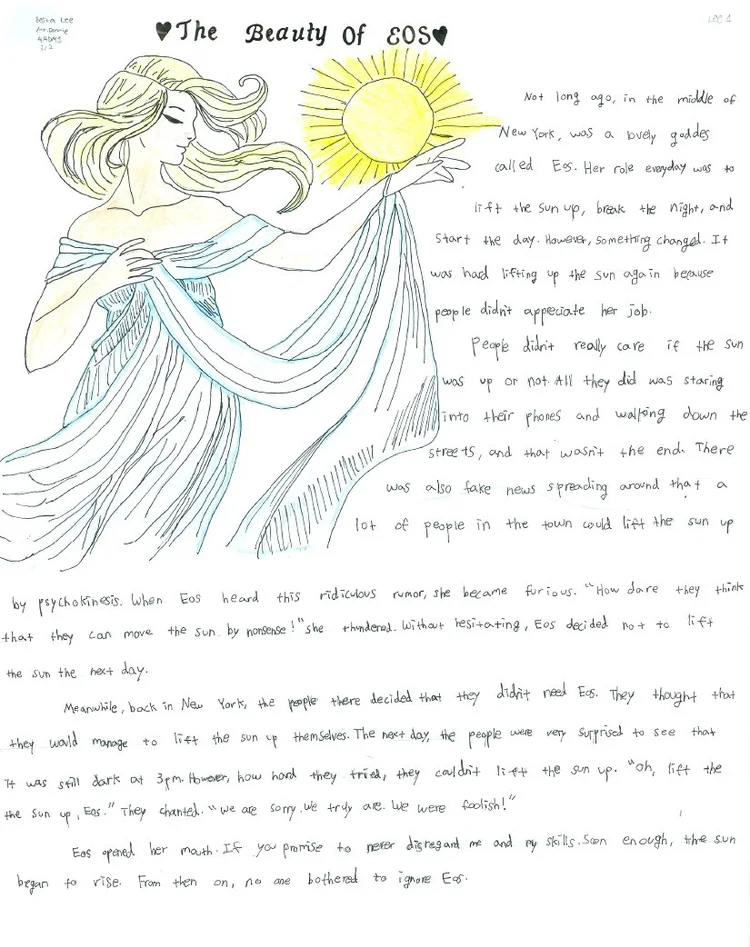 Lee
♥The Beauty Of EOS♥
Lee 1
Not long ago, in the middle of
New York, was a lovely goddes
called Eos. Her role everyday was to
lift the sun up, break the night, and
start the day. However, something changed. It
was hard lifting up the sun again because
people didn't appreciate her job.
People didn't really care if the sun
was up or not. All they did was staring
into their phones and walking down the
streets, and that wasn't the end. There
was also fake news spreading around that a
lot of people in the town could lift the sun up
by psychokinesis. When Eos heard this ridiculous rumor, she became furious. "How dare they think
that they can move the sun by nonsense!" she thundered. Without hesitating, Eos decided not to lift
the sun the next day.
Meanwhile, back in New York, the people there decided that they didn't need Eos. They thought that
they would manage to lift the sun up themselves. The next day, the people were very surprised to see that
it was still dark at 3pm. However, how hard they tried, they couldn't lift the sun up. "Oh, lift the
the sun up, Eos." They chanted. "We are sorry. We truly are. We were foolish!"
Eos opened her mouth. If you promise to never disregard me and my skills. Soon enough, the sun
began to rise. From then on, no one bothered to ignore Eos.